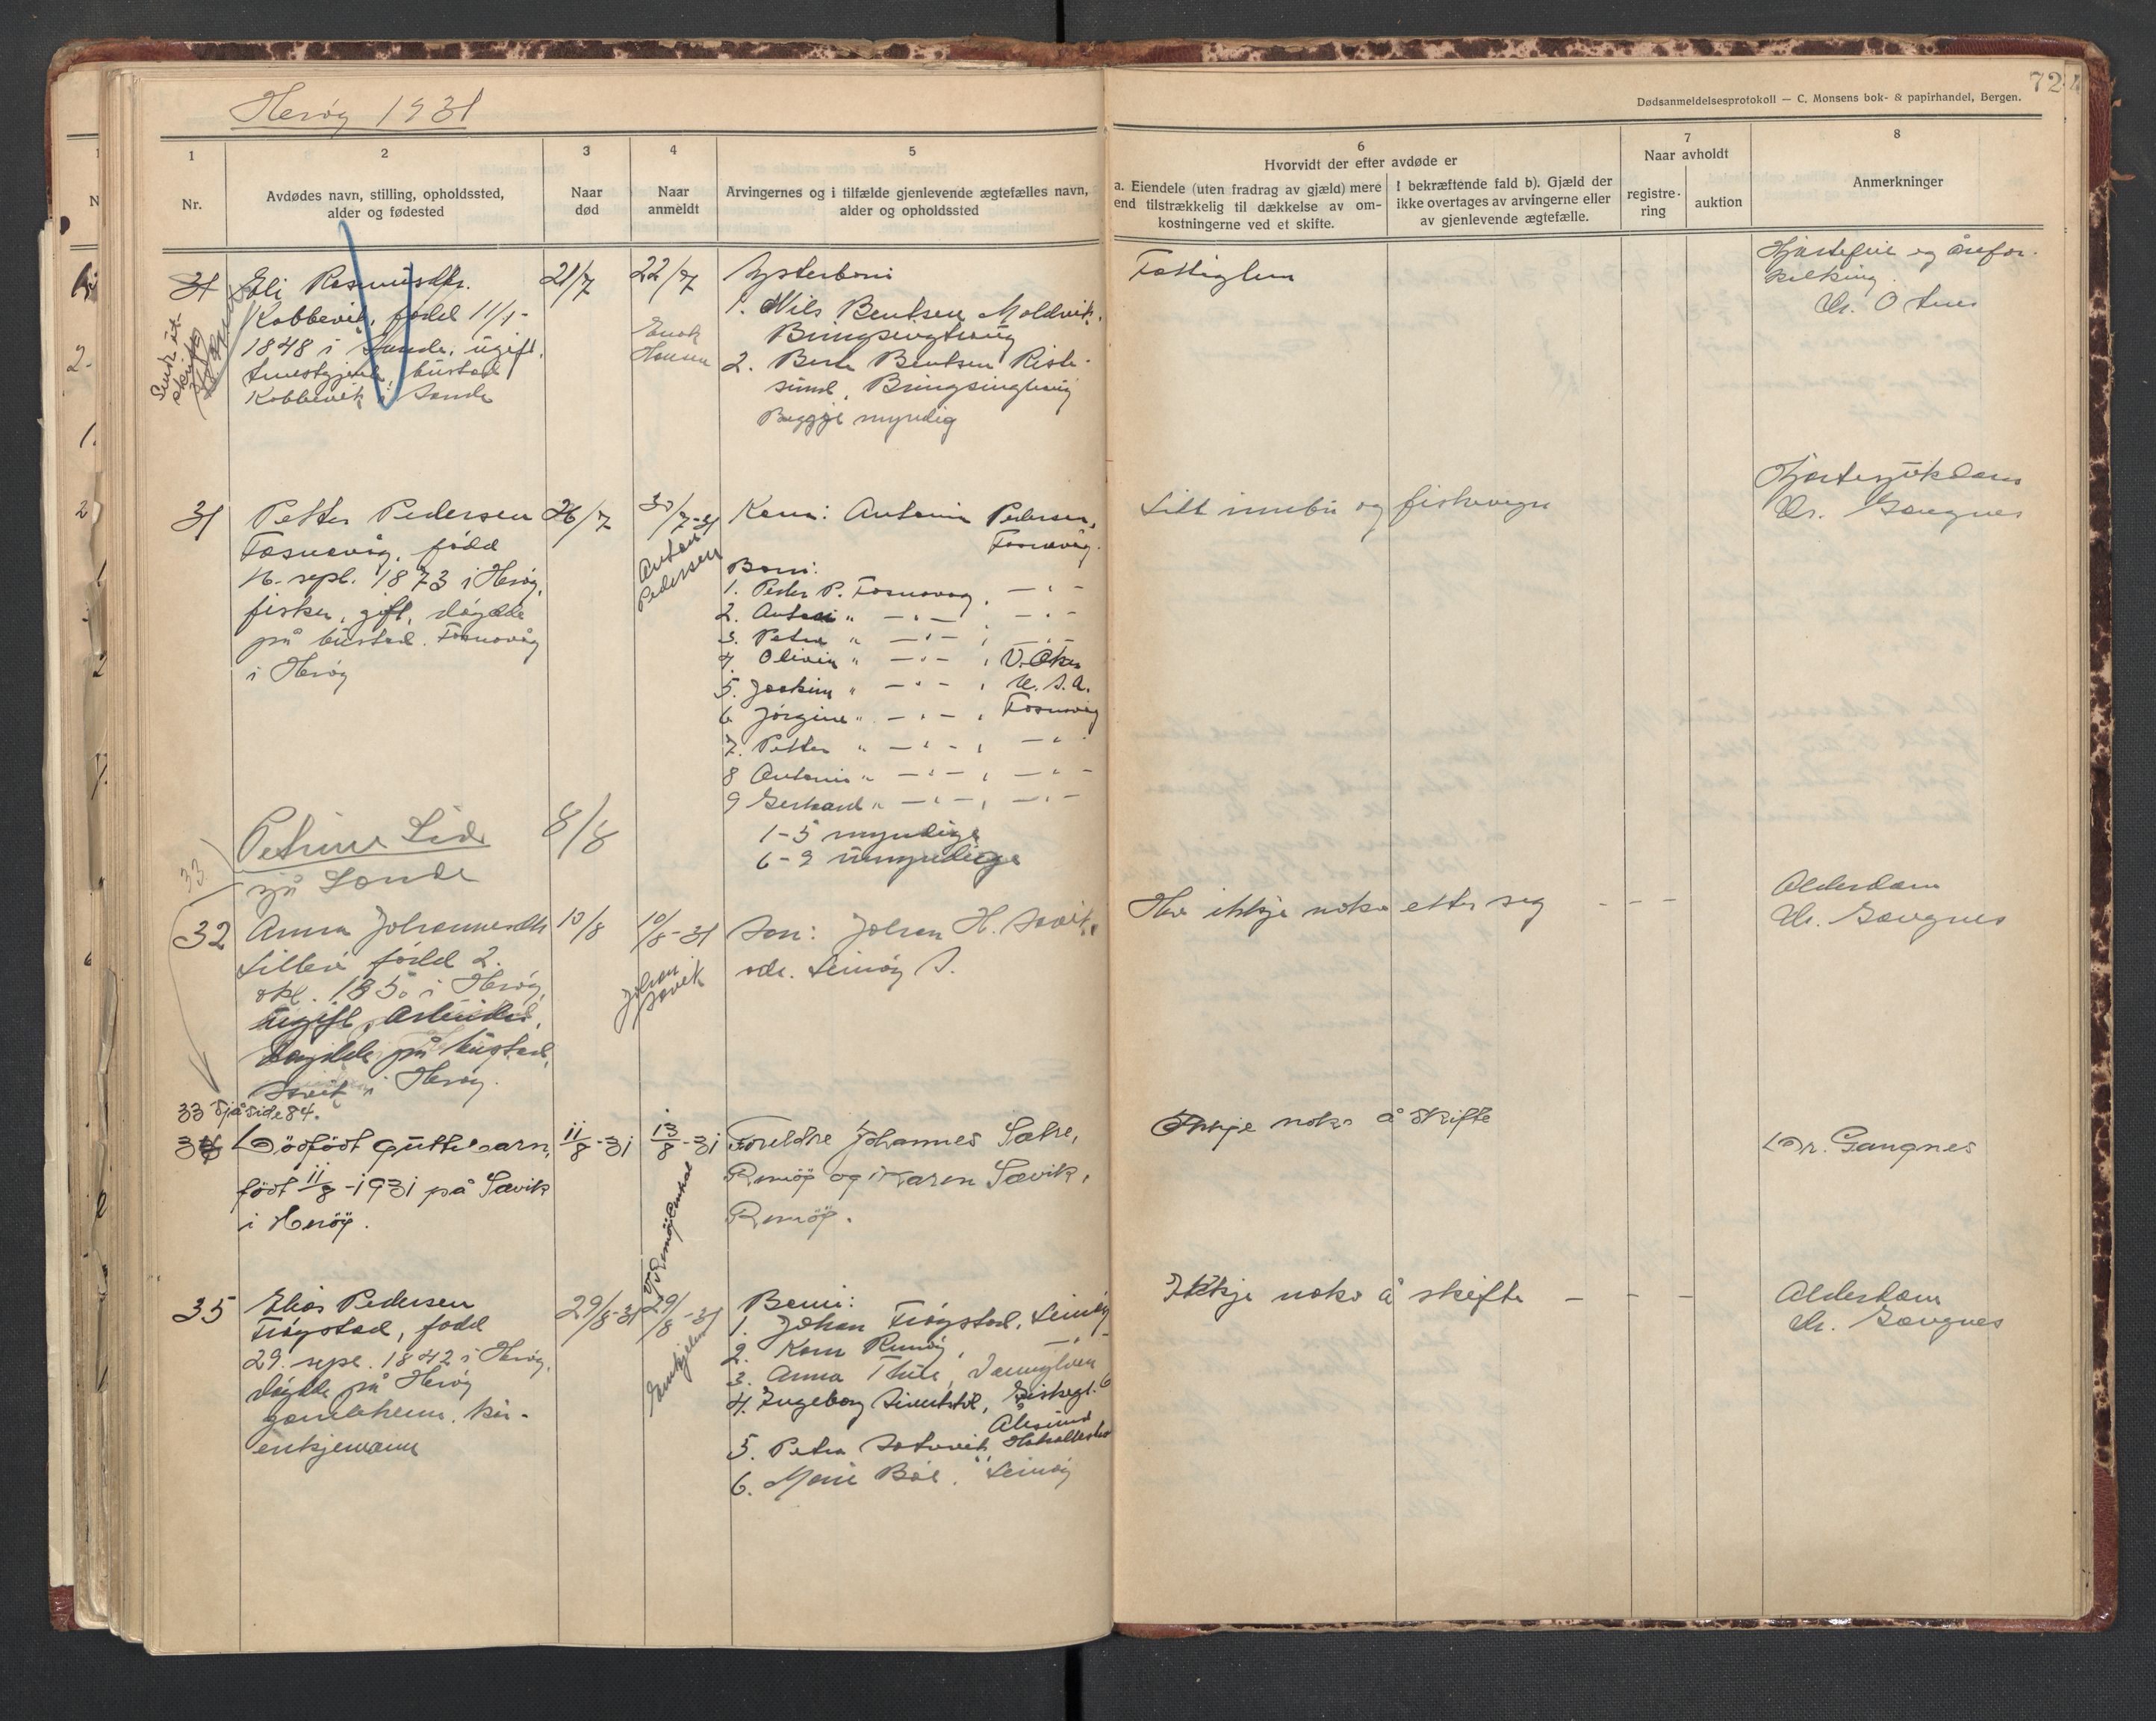 Herøy 1931
72
Dødsanmeldelsesprotokoll — C. Monsens bok- & papirhandel, Bergen.
1
Nr.
2
Avdødes navn, stilling, opholdssted,
alder og fødested
3
Naar
død
4
Naar
anmeldt
5
Arvingernes og i tilfælde gjenlevende ægtefælles navn,
alder og opholdssted
6
Hvorvidt der efter avdøde er
a. Eiendele (uten fradrag av gjæld) mere
end tilstrækkelig til dækkelse av om-
kostningerne ved et skifte.
I bekræftende fald b). Gjæld der
ikke overtages av arvingerne eller
av gjenlevende ægtefælle.
7
Naar avholdt
registre-
ring
auktion
8
Anmerkninger
31
Eli Rasmusdtr.
Kobbevik, fødd 11/1-
1848 i Sande, ugift,
bustad
Kobbevik i Sande
21/7
22/7
Enok
Hansen
Systerborn
1. Nils Bentsen Moldvik,
Bringsinghaug
2. Berte Bentsen Riste-
sund, Bringsinghaug
Beggje myndig
Fattiglem
Hjartefeil og årefor-
kalking
31
Petter Pedersen
Fosnavåg, fødd
16. sept. 1873 i Herøy,
fisker, gift, døydde
på bustad Fosnavåg
i Herøy
26/7
30/7-31
Antoni
Pedersen
Kona: Antonia Pedersen,
Fosnavåg.
Born:
1. Peder P. Fosnavåg, — " —
2. Antoni " — " — , — " —
3. Petra " — " — , — " —
4. Olivia " — " — ,
5. Joakim " — " — , U.S.A.
6. Jørgine " — " — , Fosnavåg
7. Petter " — " — , — " —
8 Antonie " — " — , — " —
9 Gerhard " — " — , — " —
1-5 myndige
6-9 umyndige
Litt innbu og fiskevegn
Hjartesjukdom
Dr. Gangnes
33
Petrine Lid
sjå Sande
8/8
32
Anna Johannesdtr
fødd 2.
okt. 1850 i Herøy,
ugift,
døydde på bustad,
Sævik i Herøy.
10/8
10/8-31
Johan
Sævik
Son: Johan H. Sævik,
adr. Leinøy S.
Har ikkje noko etter seg - - -
Alderdom
Dr. Gangnes
33 Sjå side 84.
34
Dødfødt guttebarn,
født 11/8-1931 på Sævik
i Herøy.
11/8-31
13/8-31
Foreldre Johannes Sætre,
Remøy og Karen Sævik,
Remøy.
Ikkje noko å skifte
Dr. Gangnes
35
Elias Pedersen
Frøystad, fødd
29. sept. 1842 i Herøy,
døydde på Herøy
gamleheim, kår-
enkjemann
29/8-31
29/8-31
Born:
1. Johan Frøystad, Leinøy
2. Karn Remøy, — " —
3. Anna
4. Ingeborg
Ålesund
5. Petra
6. Marie Bøe, Leinøy
Ikkje noko å skifte — — —
Alderdom
Dr. Gangnes